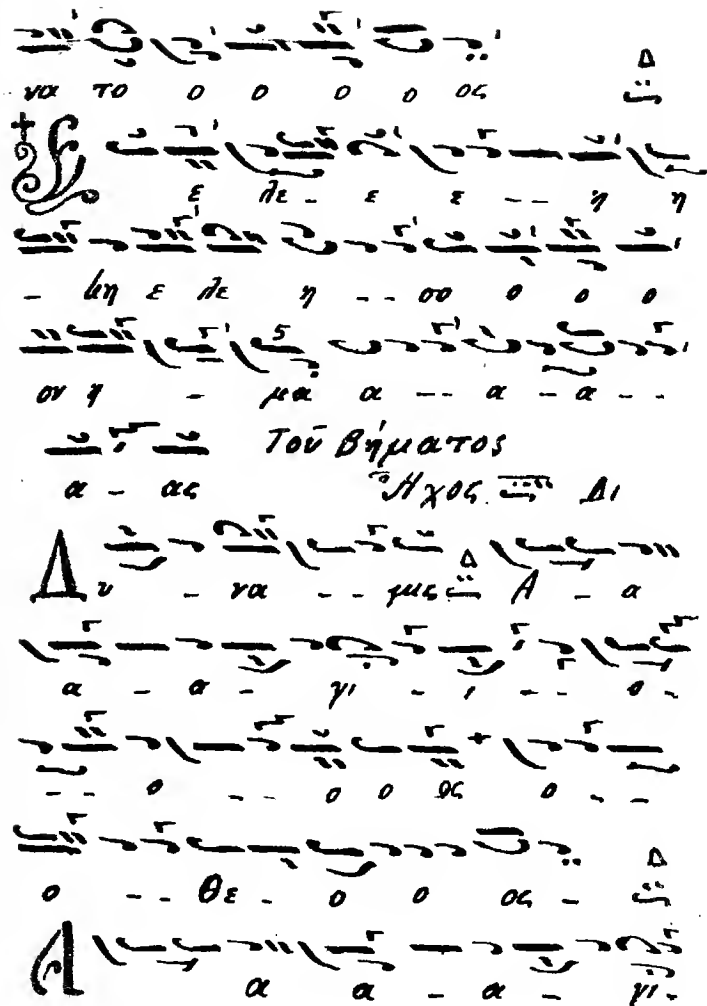 να το ο ο ο ο ος Δ
ε λε - ε ε - - η η
- μη ε λε η - - σο ο ο ο
ον η - μα α - - α - α - -
Τοῦ Βήματος
α - ας Ἦχος Δι
Δυ - να - - μις Δ Α - α
α - α - γι - ι - - ο -
- - ο - - ο ο ος ο - -
ο - - Θε - ο ο ος - Δ
Α α α - α - γι -